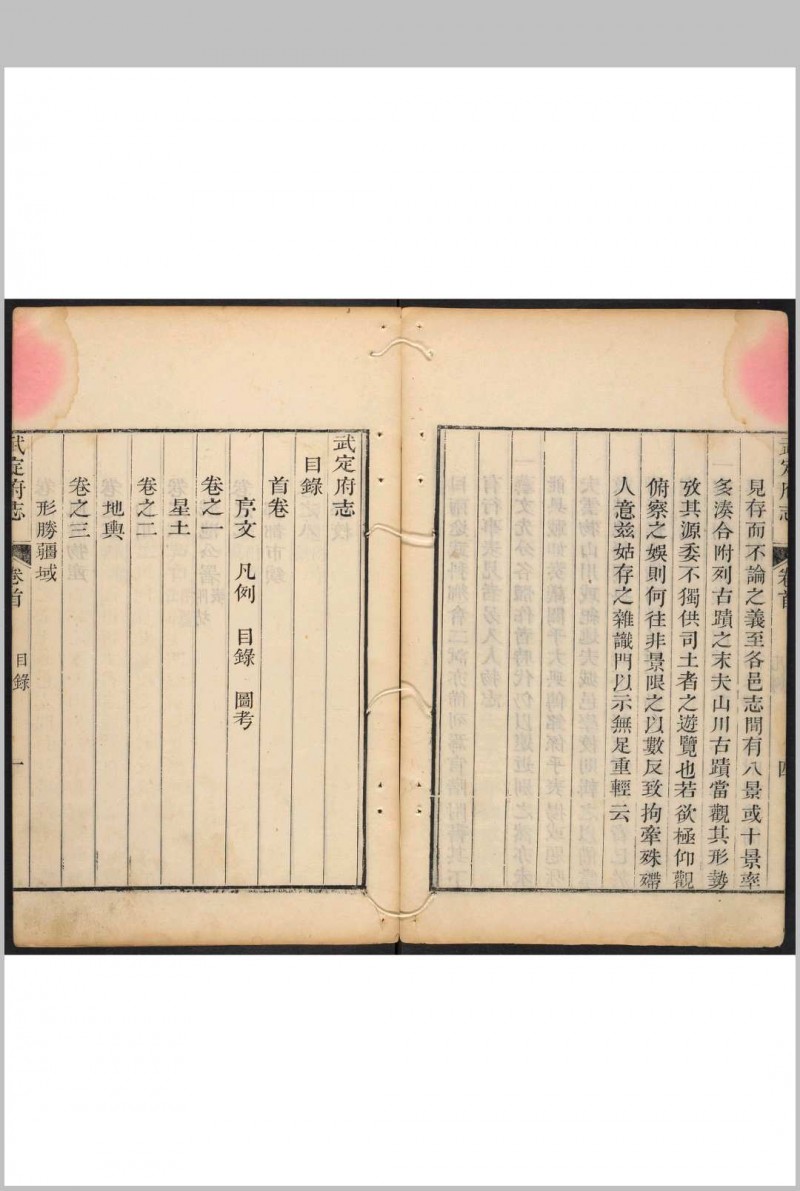 武定府志
卷首
四
見存而不論之義至各邑志間有八景或十景率
多湊合附列古蹟之末夫山川古蹟當觀其形勢
攷其源委不獨供司土者之遊覽也若欲極仰觀
俯察之娛則何往非景限之以數反致拘牽殊礙
人意兹姑存之雜識門以示無足重輕云
武定府志
目錄
首卷
序文 凡例 目錄 圖考
卷之一
星土
卷之二
地輿
卷之三
形勝疆域
武定府志
卷首
目錄
一